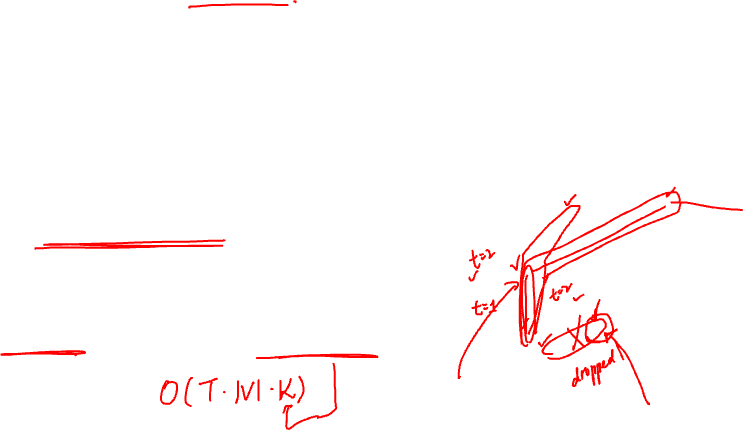 t=2
t=1
t=2
dropped
O(T·|V|·K)